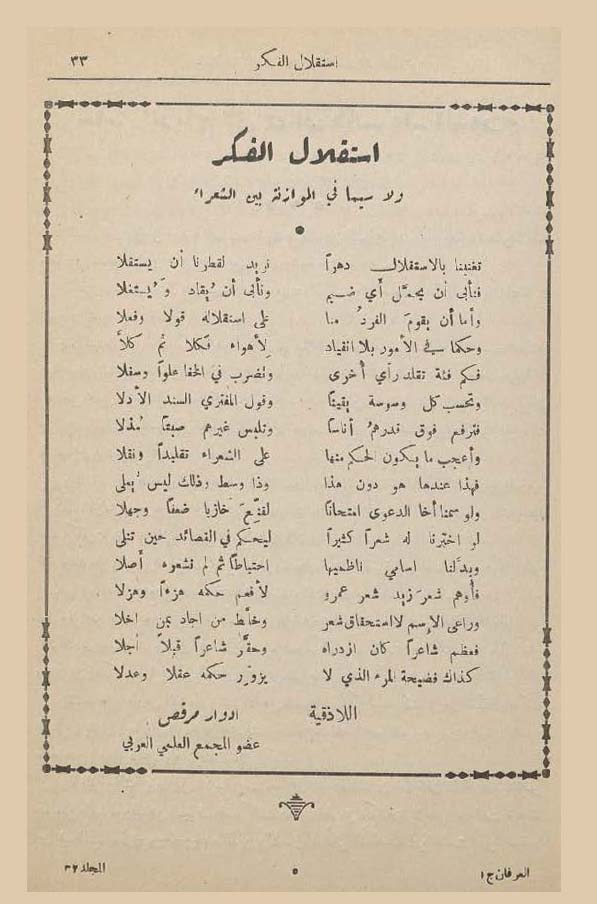 استقلال الفكر ٣٣
استقلال الفكر
ولا سيما في الموازنة بين الشعراء
تغنينا بالاستقلال دهراً نريد لقطرنا أن يستقلا
فنأبى ان يحمَّل أي ضيم ونأبى أن يُقاد ويُستغلا
وأما أن يقومَ الفردُ منا على استقلاله قولا وفعلا
وحكما في الأمور بلا انقياد لأهواء فكلا ثم كلاَّ
فكم فئة تقلد رأي أخرى وتضرب في الخفا علواً وسفلا
وتحسب كل وسوسة يقيناً وقول المفتري السند الأدلا
فترفع فوق قدرهمُ أناساً وتلبس غيرهم ضيقاً مُذلا
وأعجب ما يكون الحكم منها على الشعراء تقليداً ونقلا
فهذا عندها هو دون هذا وذا وسط وذلك ليس يُعلى
ولو سمنا أخا الدعوى امتحاناً لقنِّعَ خازيا ضعفاً وجهلا
لو اخترنا له شعراً كثيراً ليحكم في القصائد حين تتلى
وبدَّلنا اسامي ناظميها احتياطاً ثم لم نشعره أصلا
فأوهم شعرَ زيد شعر عمرو لأفعم حكمه هزءاً وهزلا
وراعى الإسم لا استحقاق شعر وخلَّط من اجاد بمن اخلا
فعظم شاعراً كان ازدراه وحقَّر شاعراً قبلاً أجلا
كذاك فضيحة المرء الذي لا يزوِّر حكمه عقلا وعدلا
اللاذقية ادوار مرقص
عضو المجمع العلمي العربي
العرفان ج ١ ٥ المجلد ٣٢